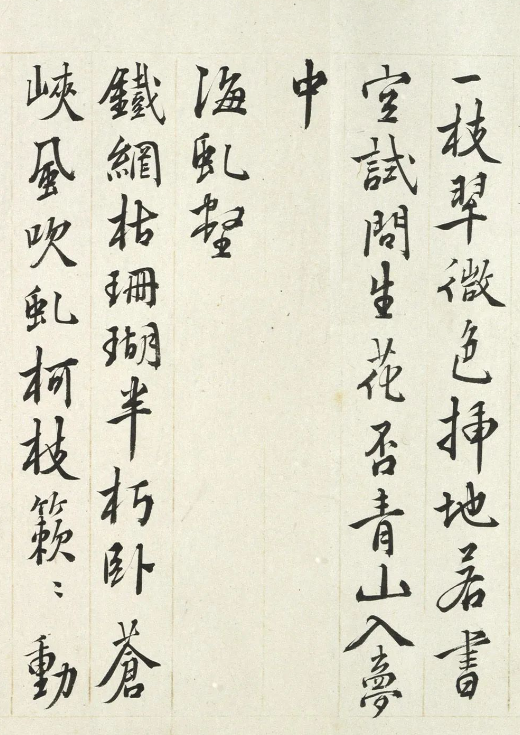 一枝翠微色挿地若書
空試問生花否青山入夢
中
海虬壑
鐵網枯珊瑚半朽卧蒼
峽風吹虬柯枝籟〻動